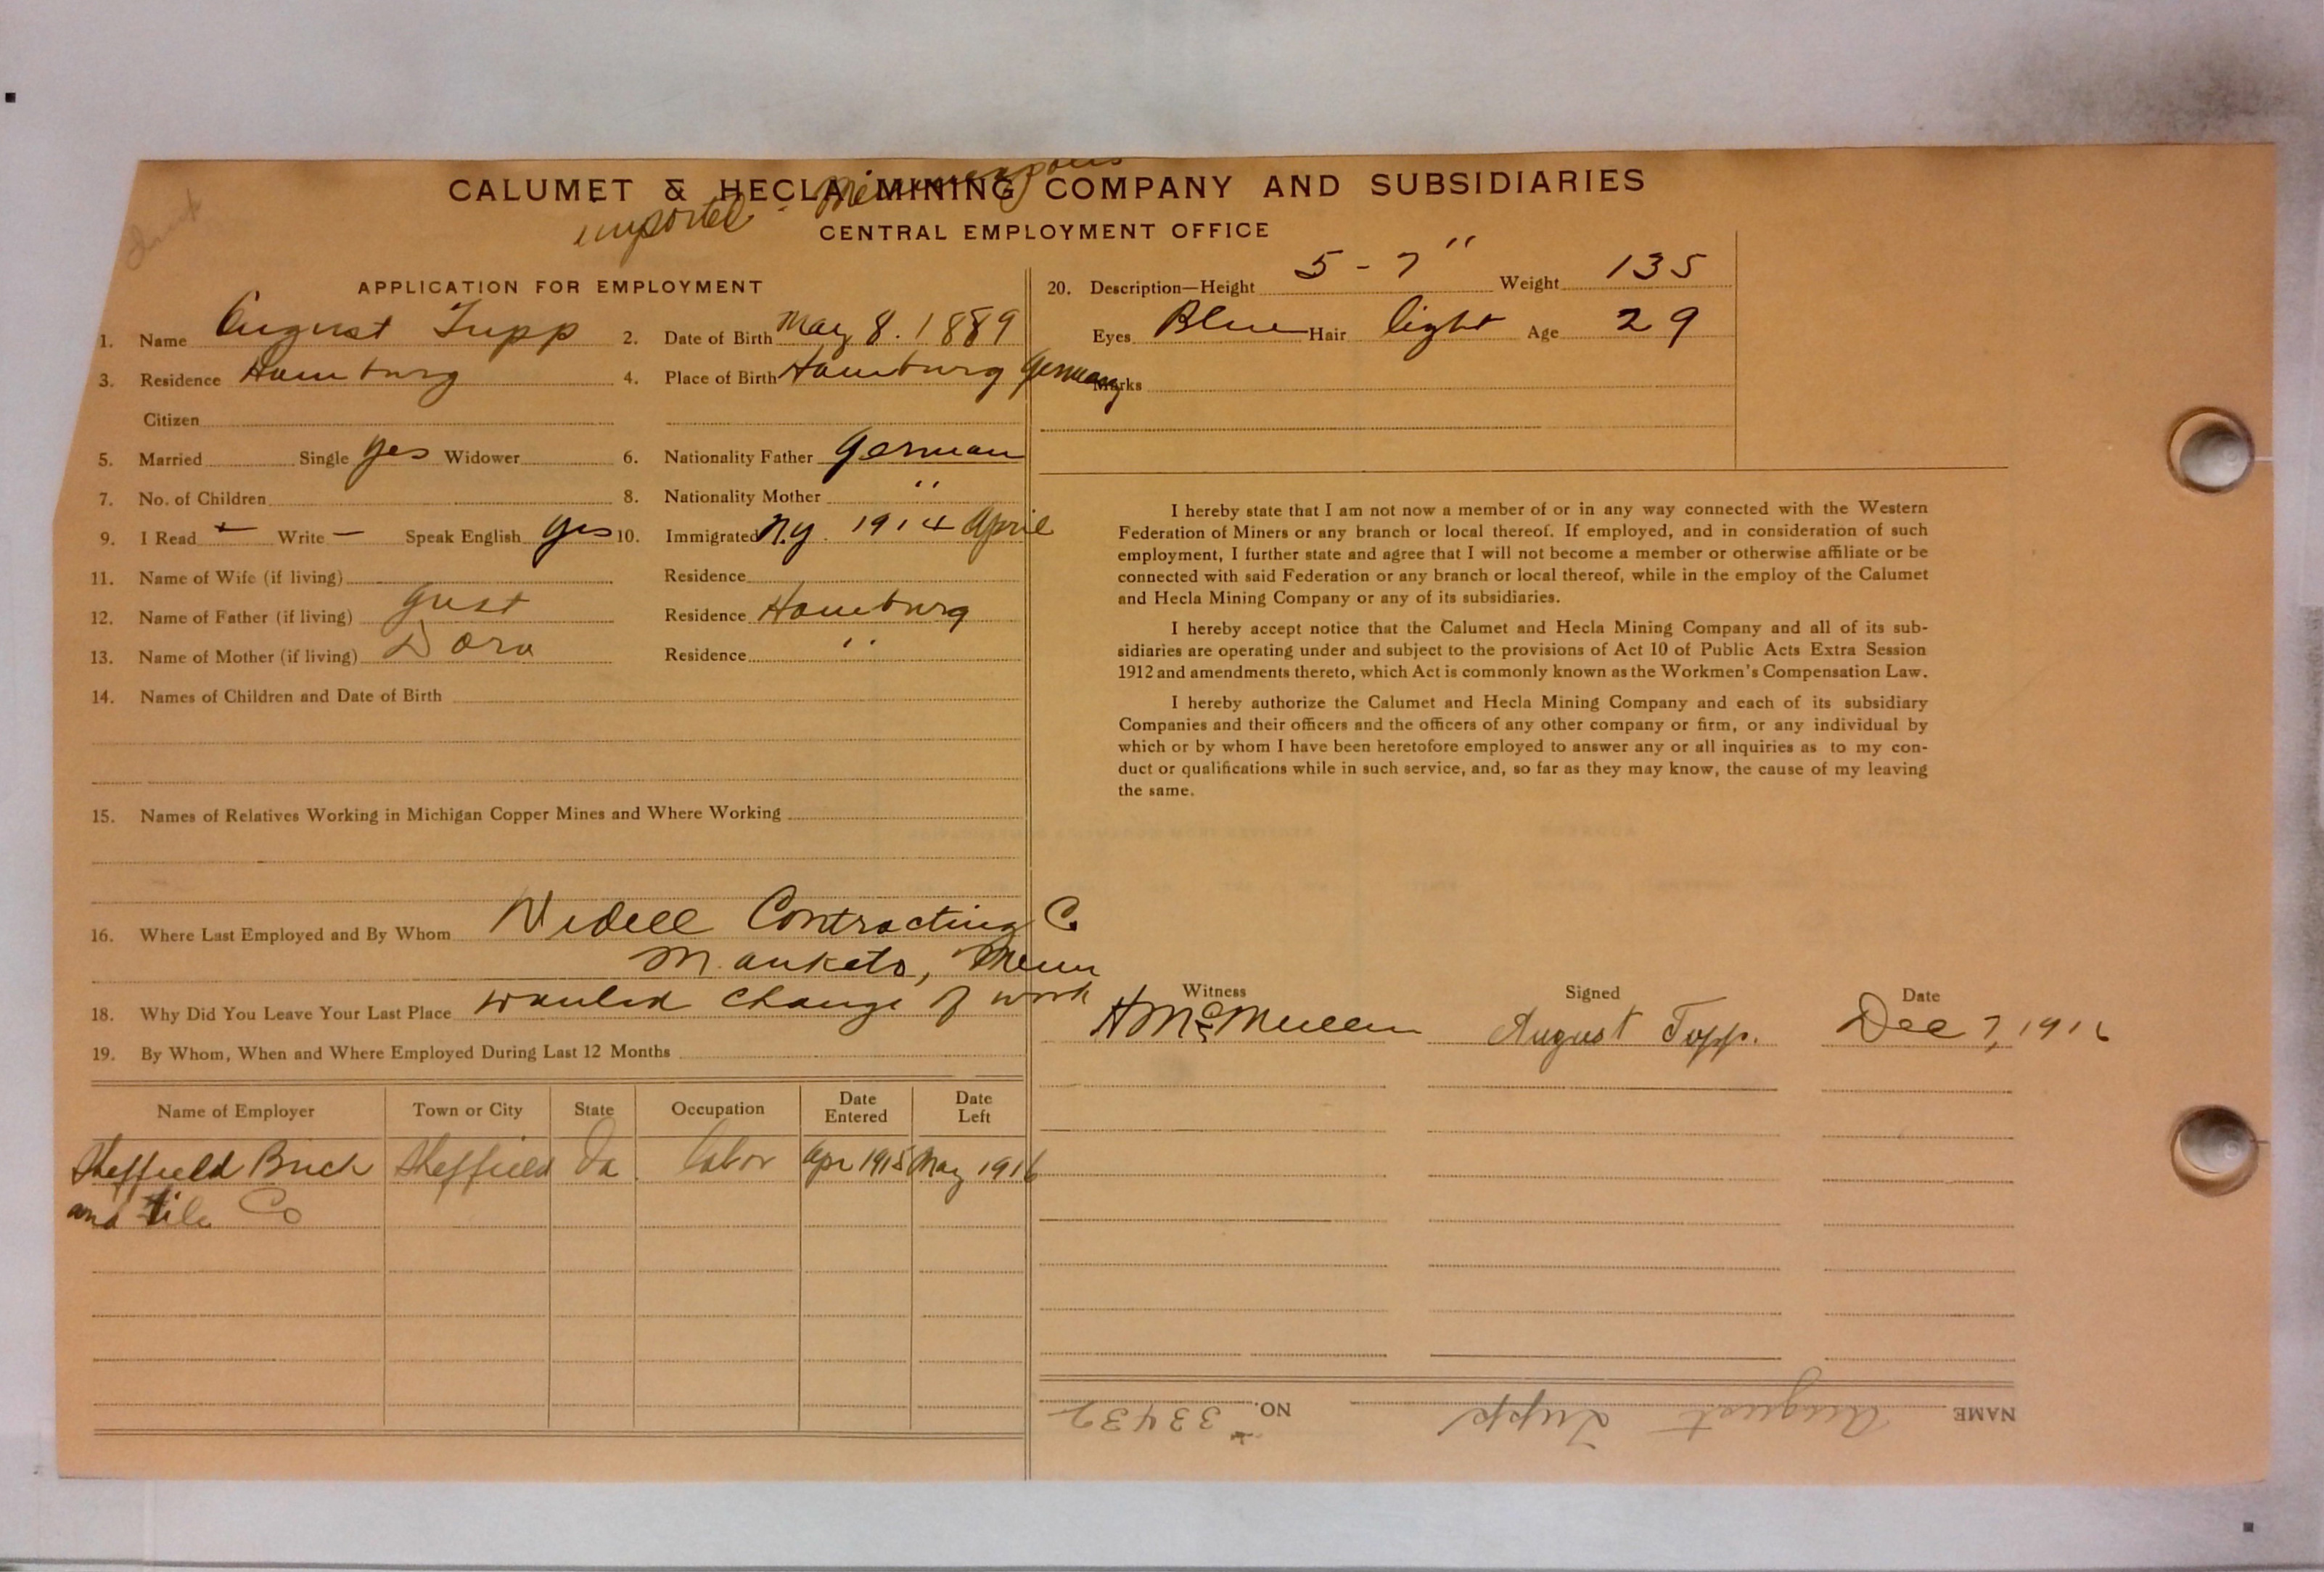 CALUMET & HECLA MINING COMPANY AND SUBSIDIARIES
imported - Minneapolis
CENTRAL EMPLOYMENT OFFICE
APPLICATION FOR EMPLOYMENT
1. Name August Tupp 2. Date of Birth May 8. 1889
3. Residence Hamburg 4. Place of Birth Hamburg Germany
Citizen
5. Married Single yes Widower 6. Nationality Father German
7. No. of Children 8. Nationality Mother "
9. I Read + Write — Speak English yes 10. Immigrated N.Y. 1914 April
11. Name of Wife (if living) Residence
12. Name of Father (if living) Gust Residence Hamburg
13. Name of Mother (if living) Dora Residence "
14. Names of Children and Date of Birth
15. Names of Relatives Working in Michigan Copper Mines and Where Working
16. Where Last Employed and By Whom Widell Contracting Co
Mankato, Minn
18. Why Did You Leave Your Last Place wanted change of work
19. By Whom, When and Where Employed During Last 12 Months
Name of Employer Town or City State Occupation Date Entered Date Left
Sheffield Brick Sheffield Ia labor Apr 1915 May 1916
and tile Co
20. Description—Height 5-7" Weight 135
Eyes Blue Hair light Age 29
Marks
I hereby state that I am not now a member of or in any way connected with the Western
Federation of Miners or any branch or local thereof. If employed, and in consideration of such
employment, I further state and agree that I will not become a member or otherwise affiliate or be
connected with said Federation or any branch or local thereof, while in the employ of the Calumet
and Hecla Mining Company or any of its subsidiaries.
I hereby accept notice that the Calumet and Hecla Mining Company and all of its sub-
sidiaries are operating under and subject to the provisions of Act 10 of Public Acts Extra Session
1912 and amendments thereto, which Act is commonly known as the Workmen's Compensation Law.
I hereby authorize the Calumet and Hecla Mining Company and each of its subsidiary
Companies and their officers and the officers of any other company or firm, or any individual by
which or by whom I have been heretofore employed to answer any or all inquiries as to my con-
duct or qualifications while in such service, and, so far as they may know, the cause of my leaving
the same.
Witness Signed Date
H McMullen August Topp. Dec 7, 1916
NAME August Tupp NO. 33432